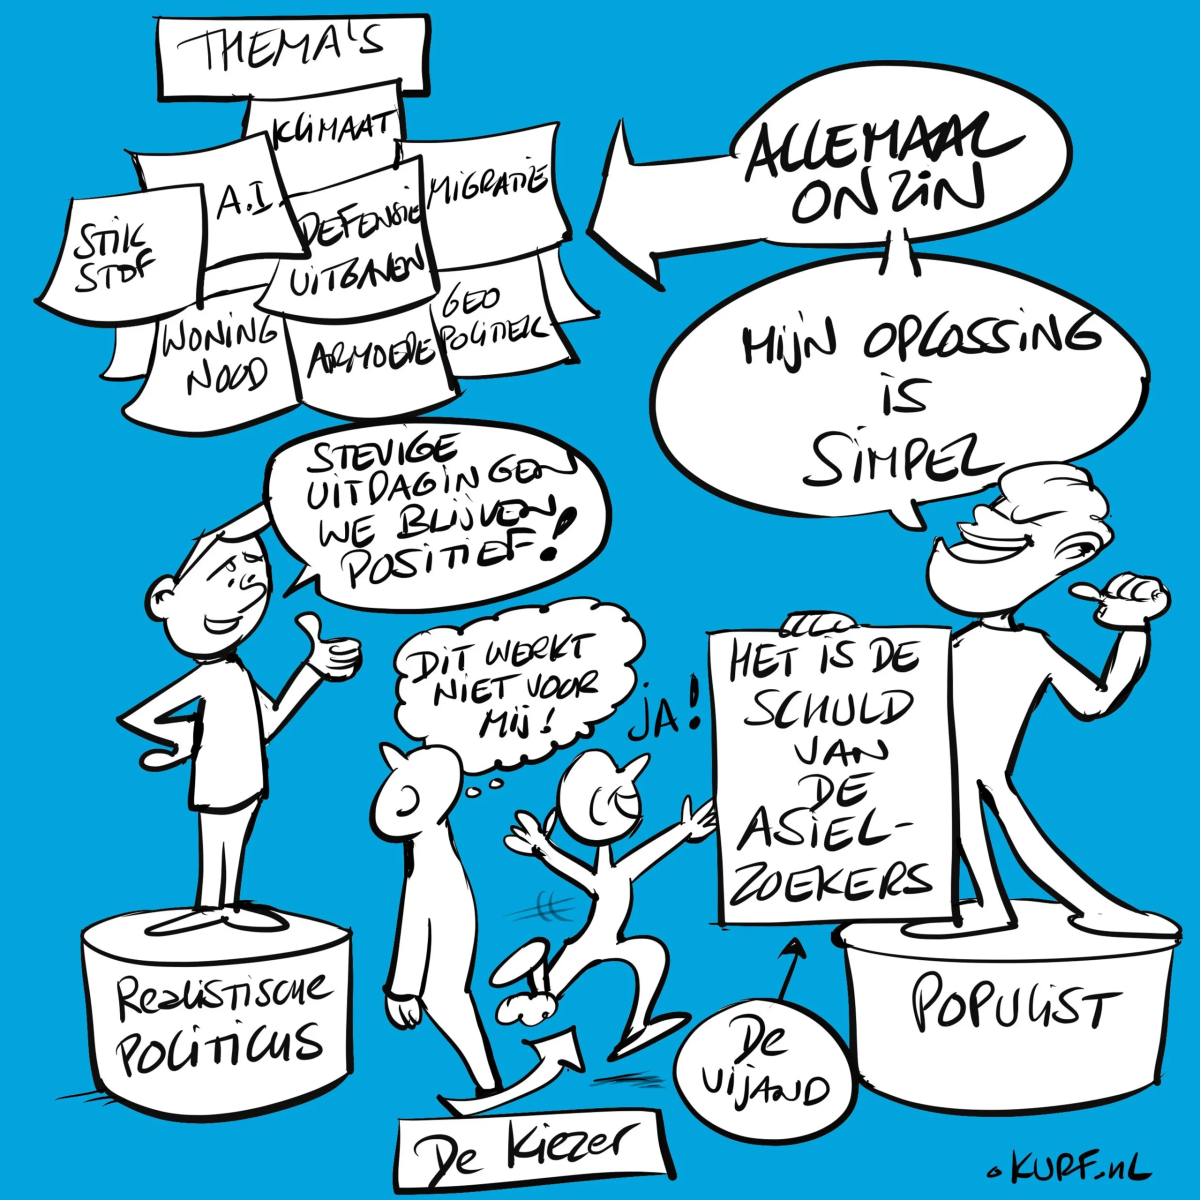 THEMA'S
KLIMAAT
A.I.
MIGRATIE
STIK
STOF
DEFENSIE
UITGAVEN
GEO
POLITIEK
WONING
NOOD
ARMOEDE
ALLEMAAL
ONZIN
MIJN OPLOSSING
IS
SIMPEL
STEVIGE
UITDAGINGEN
WE BLIJVEN
POSITIEF!
DIT WERKT
NIET VOOR
MIJ!
JA!
HET IS DE
SCHULD
VAN
DE
ASIEL-
ZOEKERS
REALISTISCHE
POLITICUS
POPULIST
DE
VIJAND
De Kiezer
KURF.nL